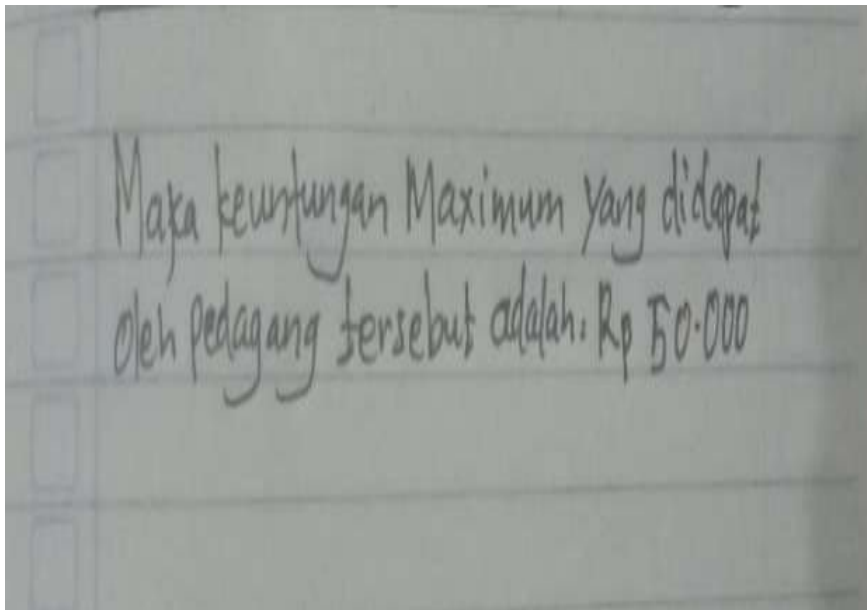 Maka keuntungan Maximum Yang didapat
oleh pedagang tersebut adalah: Rp 50.000